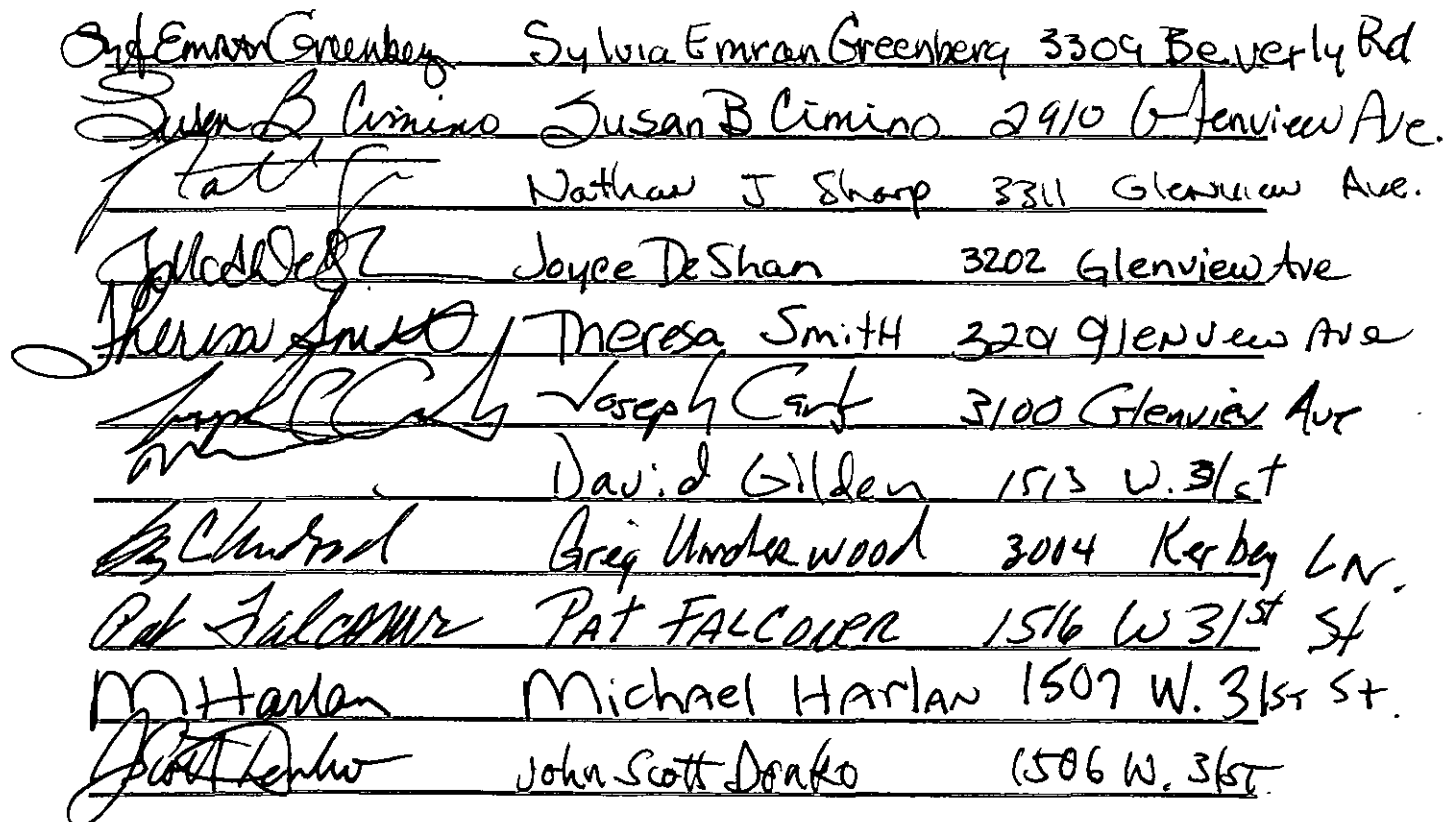 Syl Emran Greenberg Sylvia Emran Greenberg 3309 Beverly Rd
Susan B Cimino Susan B Cimino 2910 Glenview Ave.
Nathan J Sharp 3311 Glenview Ave.
Joyce DeShan 3202 Glenview Ave
Theresa Smith Theresa Smith 3201 Glenview Ave
Joseph C Joseph 3100 Glenview Ave
David Gilden 1513 W. 31st
Greg Underwood 3004 Kerbey LN.
Pat Falconer PAT FALCONER 1516 W 31st St
M Harlan Michael HARLAN 1507 W. 31st St.
J Scott Denko John Scott Denko 1506 W. 31ST.